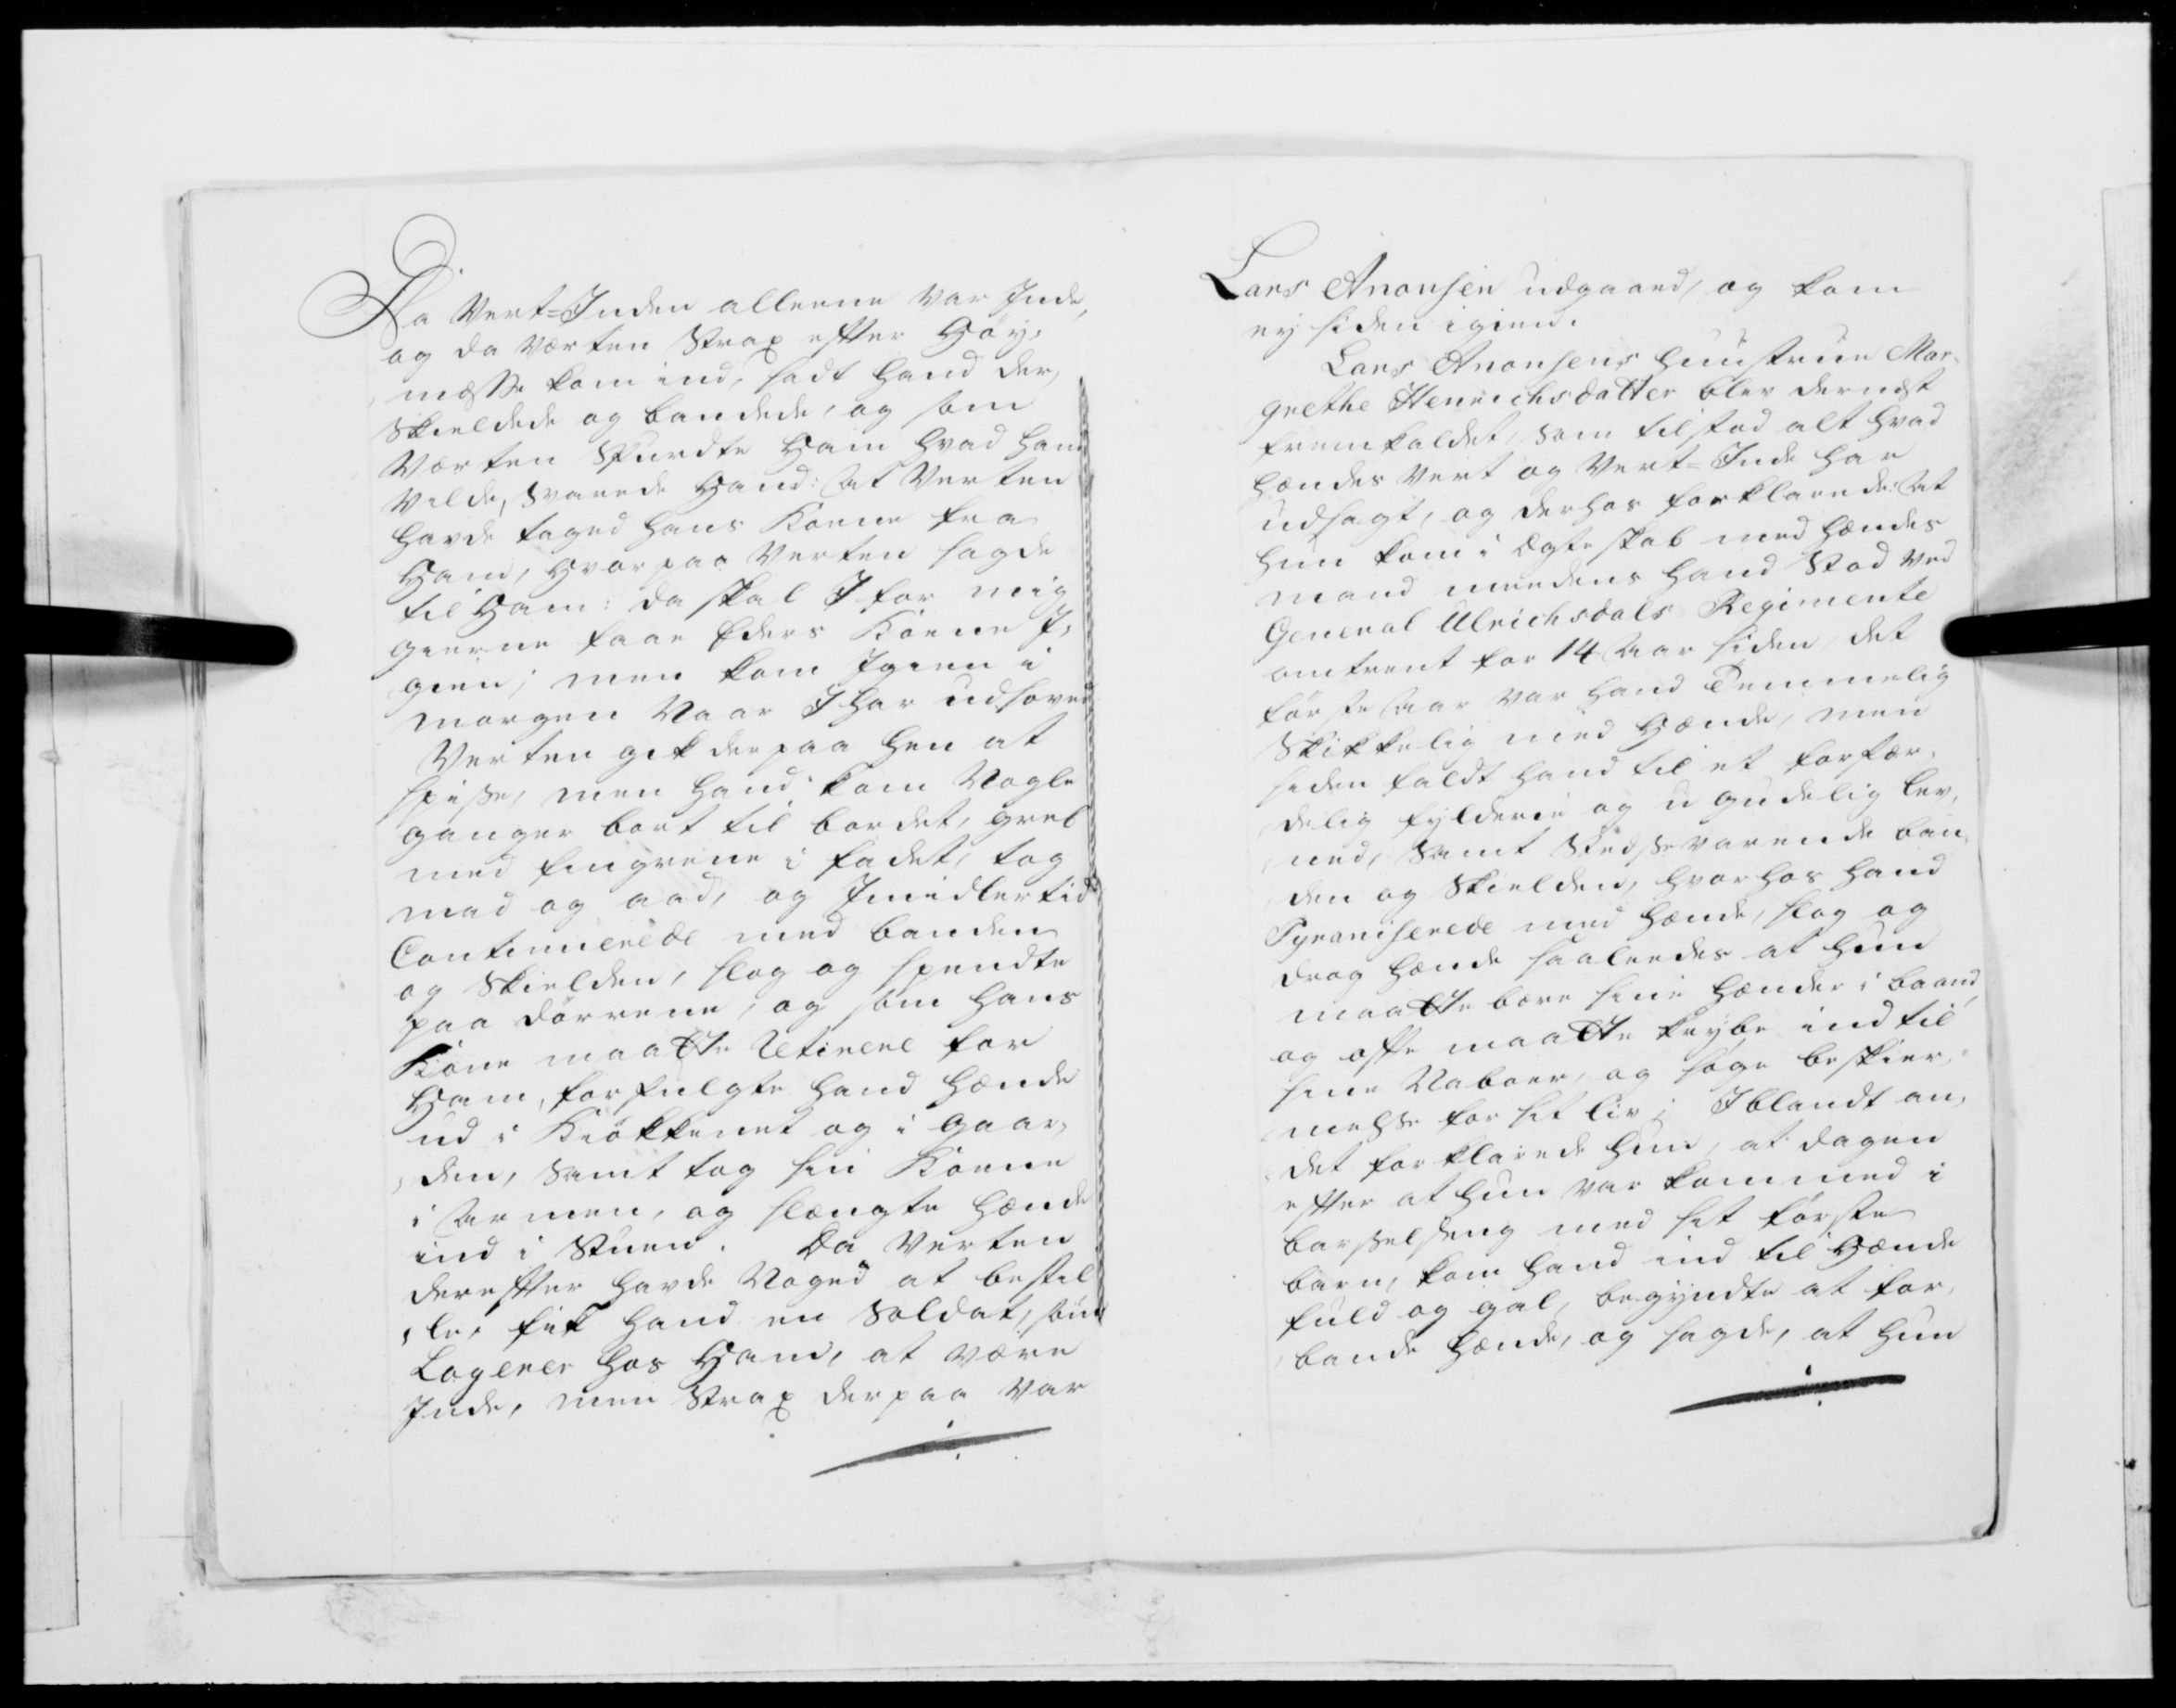 Da Vert-Inden alleene var Inde,
og da Værten Strax efter Høy,
mæsse kom ind, sadt hand der,
Skieldede og bandede, og som
Værten Spurdte Ham hvad han
Vilde, Svarede Hand: At Verten
havde taged hans Koene fra
Ham, hvorpaa Verten sagde
til Ham: da skal I for mig
gierne faae Eders Koene I,
gien; men kom Igien i
morgen Naar I har udsoved
Verten gik derpaa hen at
spise, men hand kom Nogle
ganger bort til bordet, greb
med fingrene i fadet, tog
mad og aad, og Imidlertid
Continuerede med banden
og Skielden, slog og spendte
paa dørrene, og som hans
Kone maatte Retirere for
Ham, forfulgte hand hænde
ud i Kiøkkenet og i gaar,
den, Samt tog sin Koene
i Armen, og slængte hænde
ind i Stuen. Da Verten
derefter havde Noged at bestil
le, fik hand en Soldat, som
Logerer hos Ham, at være
Inde, men Strax derpaa var
Lars Anonsen udgaaed, og kom
ey siden igien.
Lars Anonsens huustrue Mar-
grethe Henrichsdatter blev dernæst
fremkaldet, som tilstod alt hvad
hændes Vert og Vert-Inde har
udsagt, og derhos forklarede: At
hun kom i Ægteskab med hændes
mand meedens hand Stod ved
General Ulrichsdals Regimente
omtrent for 14 Aar siden, det
første Aar var hand Temmelig
Skikkelig med Hænde, men
siden faldt hand til et forfær,
delig fylderie og ugudelig lev,
ned, Samt Stedsevarende ban,
den og Skielden, hvorhos hand
Tyraniserede med hænde, slog og
drog hænde saaleedes at hun
maatte bære sine hænder i baand,
og ofte maatte krybe ind til
sine Naboer, og søge beskier,
melse for sit liv; Iblandt an,
det forklarede hun, at dagen
efter at hun var kommed i
barselseng med sit første
barn, kom hand ind til Hænde
fuld og gal, begyndte at for,
bande hænde, og sagde, at hun